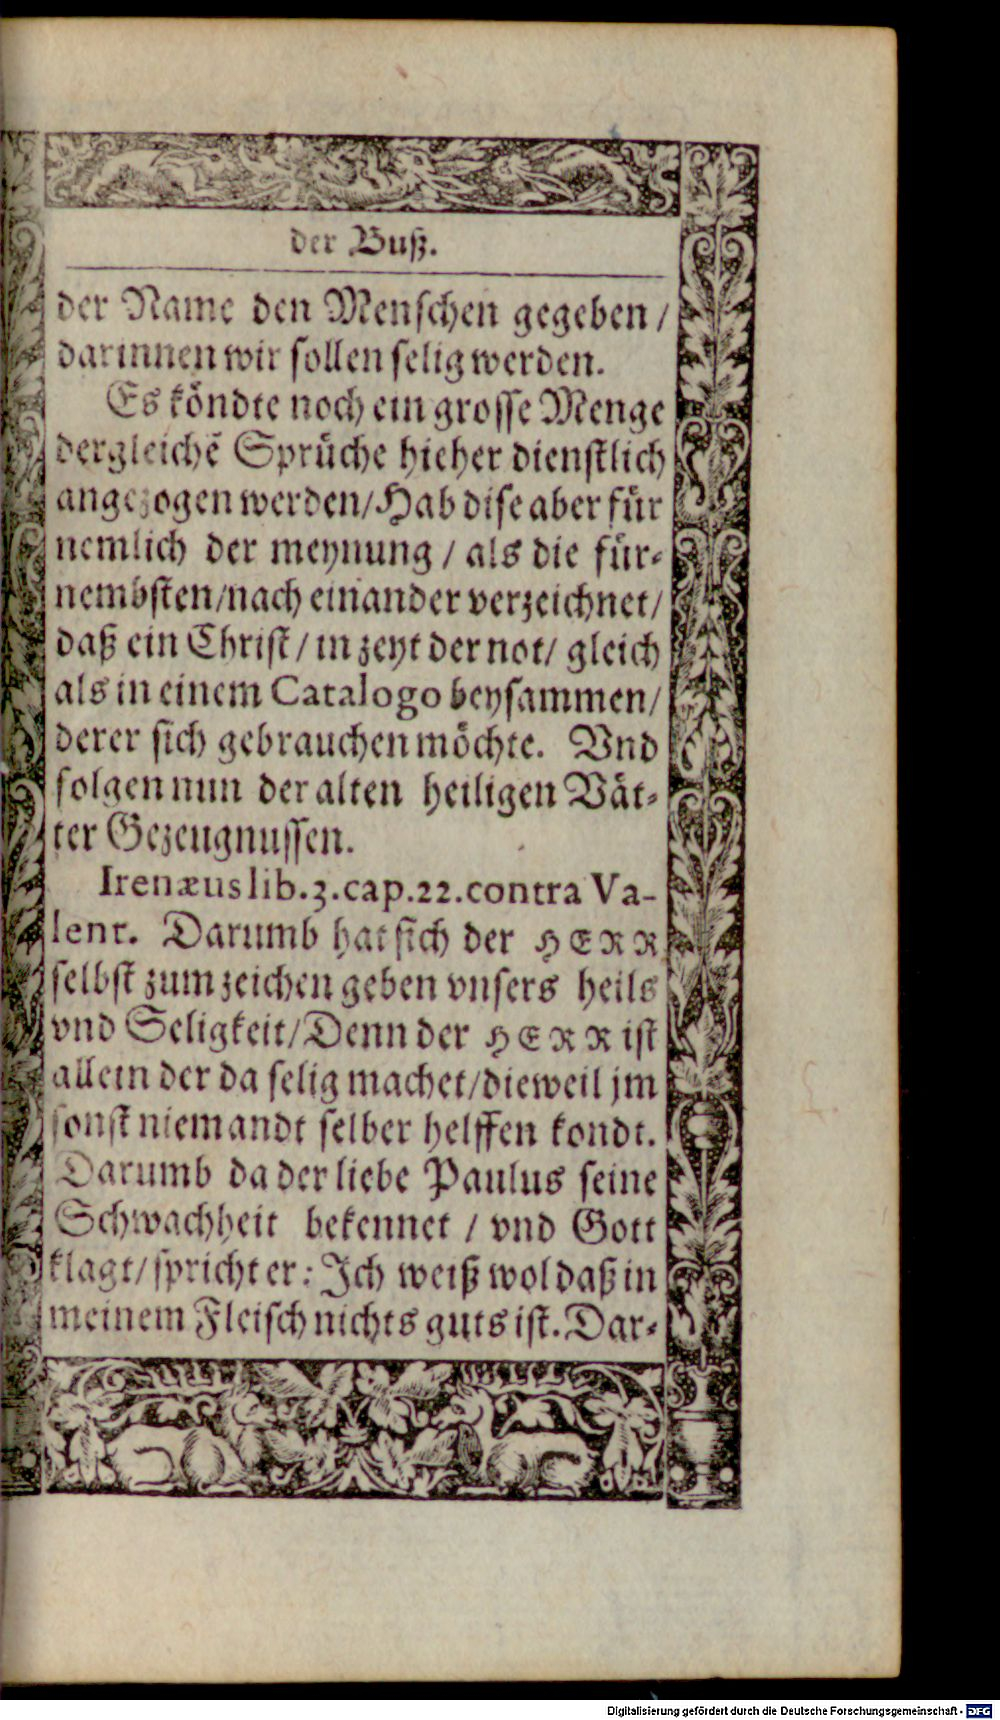 der Buß.
der Name den Menschen gegeben /
darinnen wir sollen selig werden.
Es koͤndte noch ein grosse Menge
dergleichẽ Spruͤche hieher dienstlich
angezogen werden/ Hab dise aber fuͤr
nemlich der meynung / als die fuͤr-
nembsten/nach einander verzeichnet/
daß ein Christ/ in zeyt der not/ gleich
als in einem Catalogo beysammen/
derer sich gebrauchen moͤchte. Vnd
folgen nun der alten heiligen Vaͤt-
ter Gezeugnussen.
Irenæus lib.3.cap.22.contra Va-
lent. Darumb hat sich der HERR
selbst zum zeichen geben vnsers heils
vnd Seligkeit/Denn der HERR ist
allein der da selig machet/dieweil jm
sonst niemandt selber helffen kondt.
Darumb da der liebe Paulus seine
Schwachheit bekennet / vnd Gott
klagt/ spricht er: Ich weiß wol daß in
meinem Fleisch nichts guts ist. Dar-
Digitalisierung gefördert durch die Deutsche Forschungsgemeinschaft - DFG